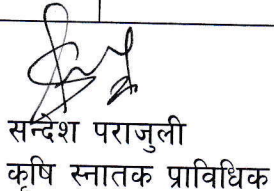 सन्देश पराजुली
कृषि स्नातक प्राविधिक